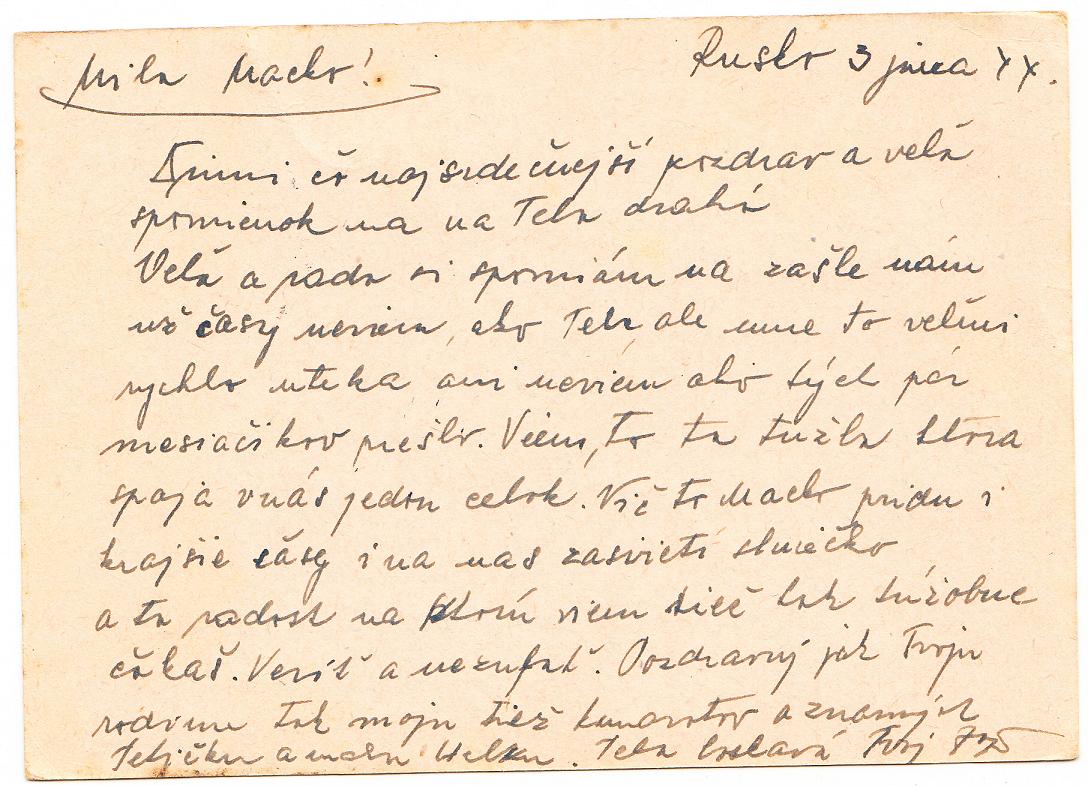 Milá Macko! Rusko 3 júna XX.
Prijmi čo najsrdečnejší pozdrav a velá
spomienok na na Teba drahá
Velá a rada si spomínám na zašle nám
už časy neviem, ako Teba, ale mne to velmi
rychlo uteka ani neviem ako tých pár
mesiačikov prešlo. Viem, to ta tužba ktora
spaja vnás jeden celok. Nič to Macko pridu i
krajšie časy i na nas zasvieti slniečko
a ta radost na ktorú viem tiež tak túžobne
čakaš. Veriť a nezufať. Pozdravuj jak Tvoju
rodinu tak moju tiež kamaratov a znamých
Tetičku a malu . Teba Tvoj